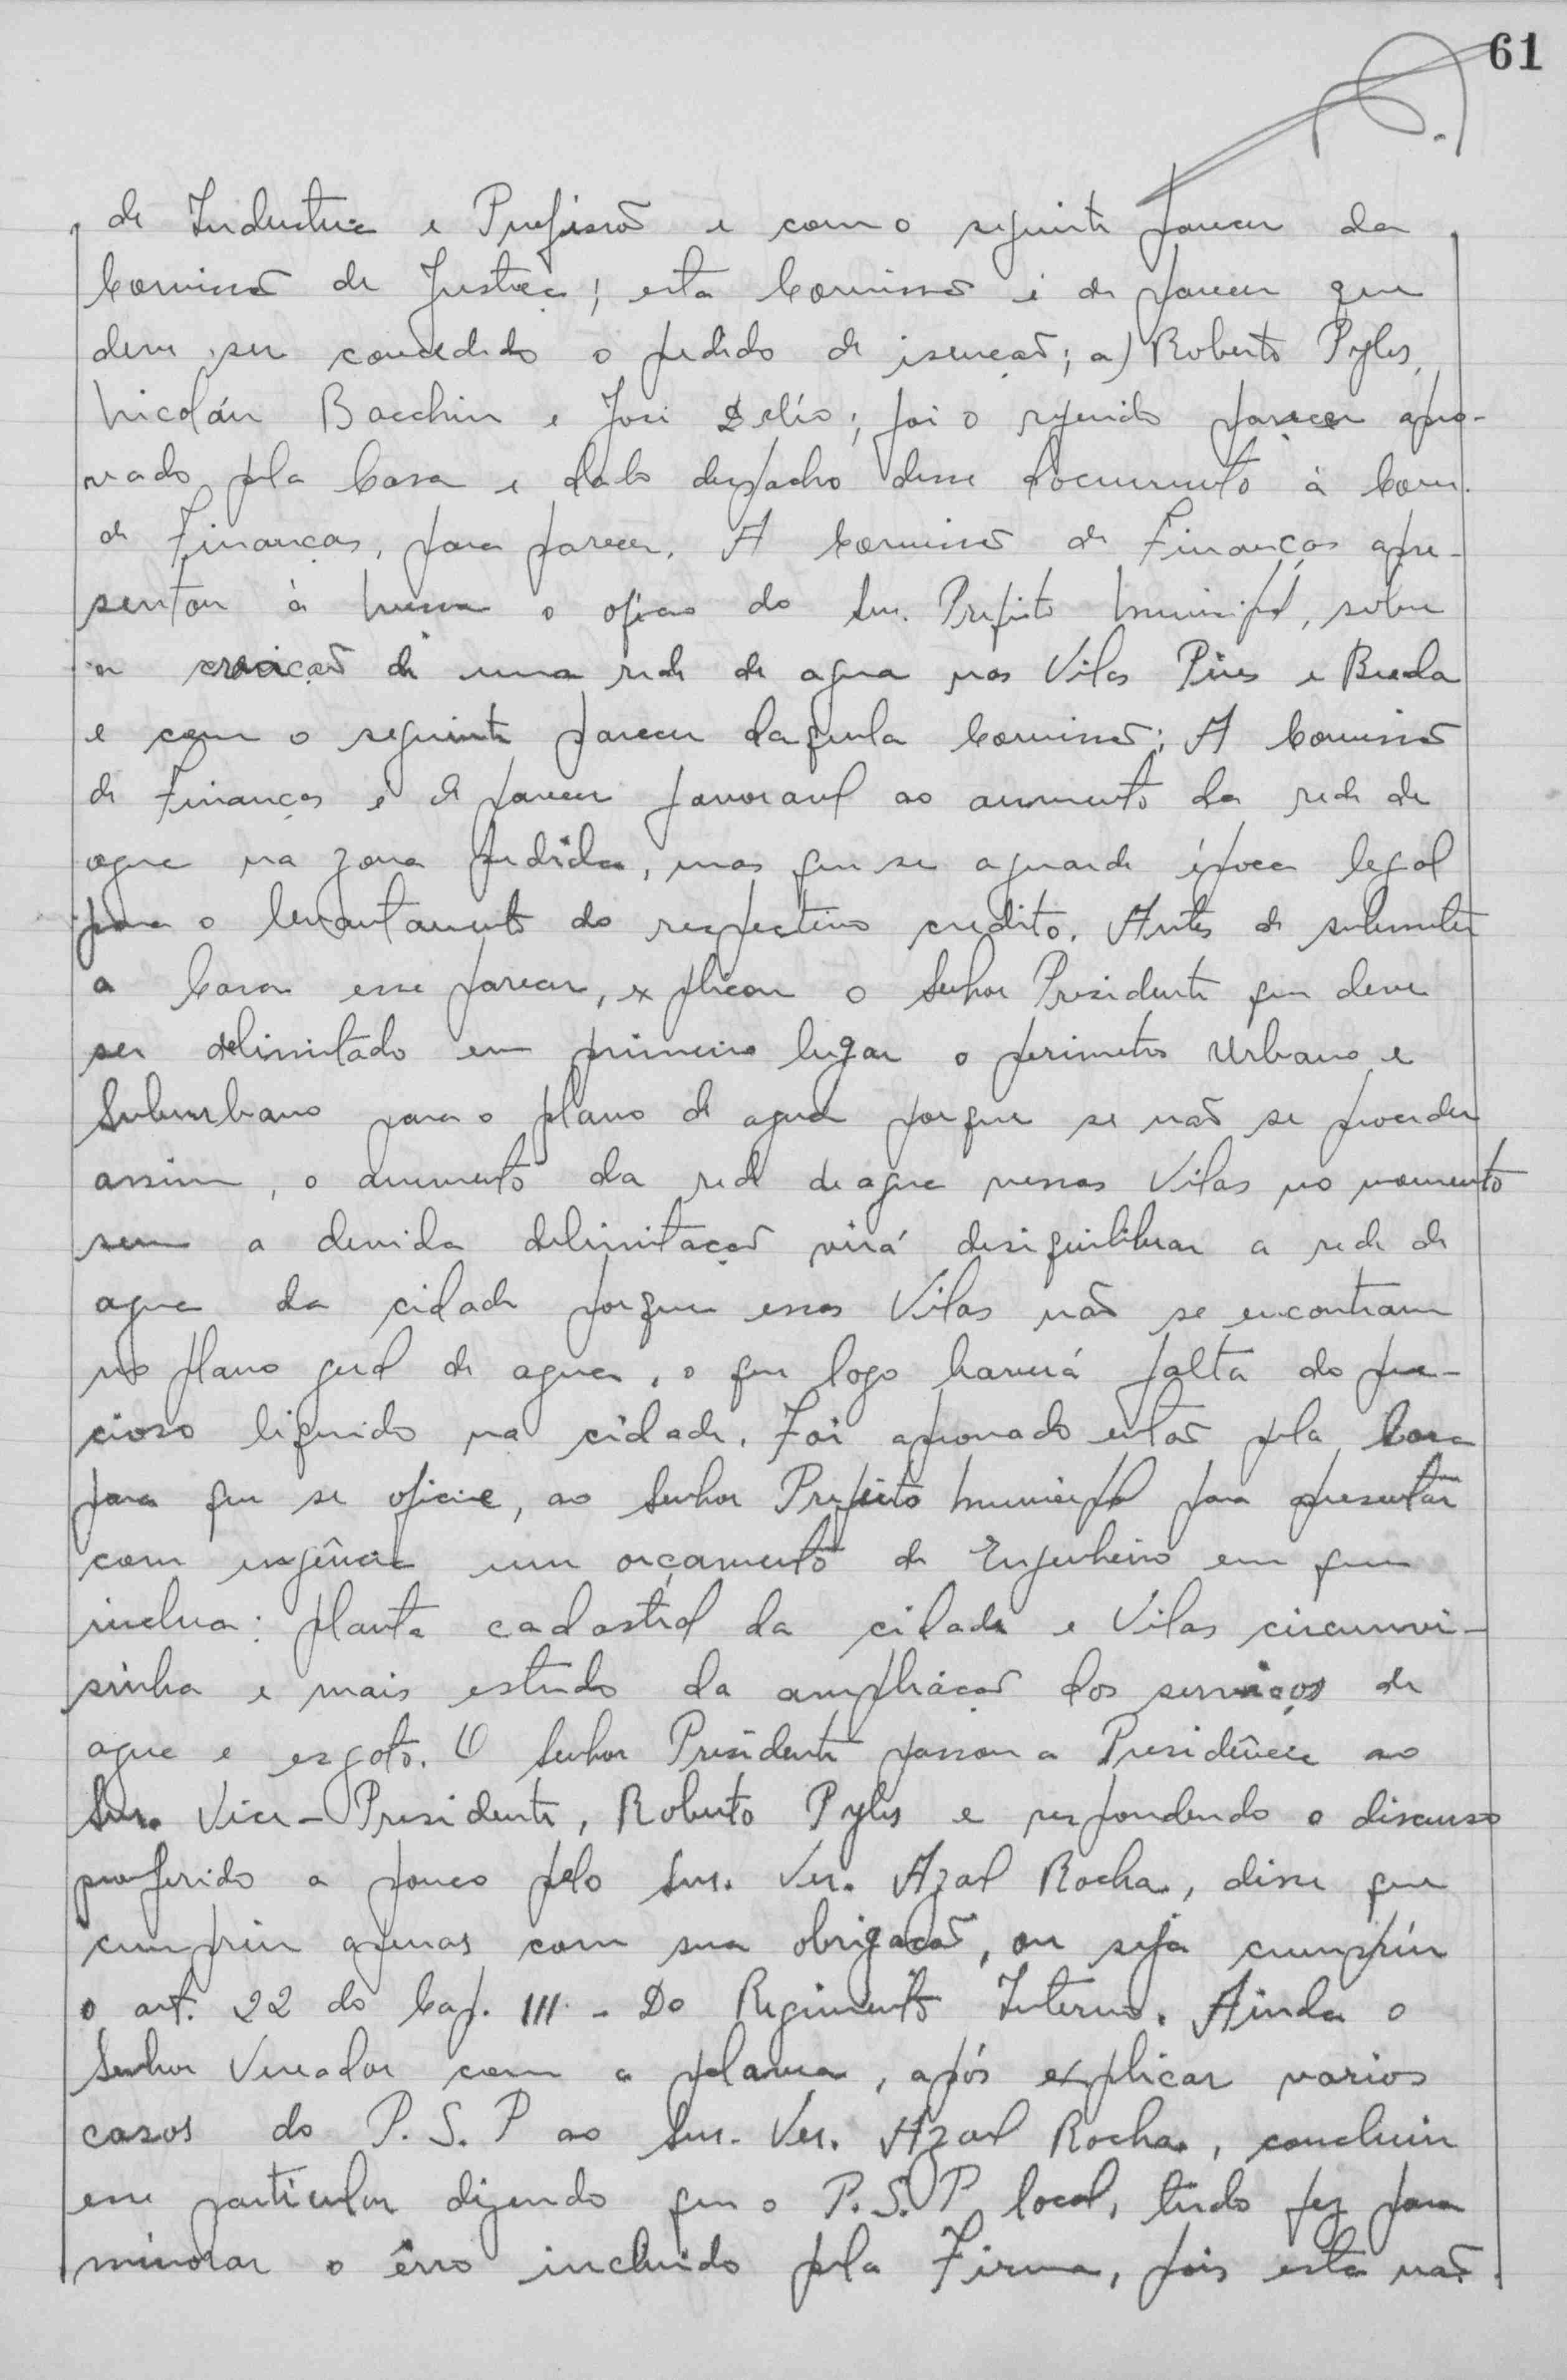 61
de Industria e Profissão e com o seguinte parecer da
Comissão de Justiça; esta Comissão é de parecer que
deve ser concedido o pedido de isenção; a) Roberto Pyles,
Nicoláu Bacchin e José Délio; foi o referido parecer apro-
vado pela Casa e dado despacho desse documento à Com.
de Finanças, para parecer. A Comissão de Finanças apre-
sentou à mesa o oficio do Snr. Prefeito Municipal, sobre
a de uma rede de agua nas Vilas Pires e Breda
e com o seguinte parecer daquela Comissão: A Comissão
de Finanças é de parecer favoravel ao aumento da rede de
agua na zona pedida, mas que se aguarde época legal
para o levantamento do respectivo credito. Antes de submeter
a Casa esse parecer, explicou o Senhor Presidente que deve
ser delimitado em primeiro lugar o perimetro Urbano e
Suburbano para o plano de agua porque se não se proceder
assim, o aumento da rede de agua nessas Vilas no momento
sem a devida delimitação virá desiquilibrar a rede de
agua da cidade porque essas Vilas não se encontram
no plano geral de agua, o que logo haverá falta do pre-
cioso liquido na cidade. Foi aprovado então pela Casa
para que se oficie, ao Senhor Prefeito Municipal para apresentar
com urgência um orçamento de Engenheiro em que
inclua: planta cadastral da cidade e Vilas circunvi-
sinha e mais estudo da ampliação dos serviços de
agua e esgoto. O Senhor Presidente passou a Presidência ao
Snr. Vice-Presidente, Roberto Pyles e respondendo o discurso
proferido a pouco pelo Snr. Ver. Azael Rocha, disse que
cumpriu apenas com sua obrigação, ou seja cumpriu
o art. 22 do Cap. III - Do Regimento Interno. Ainda o
Senhor Vereador com a palavra, após explicar varios
casos do P.S.P ao Snr. Ver. Azael Rocha, concluiu
esse particular dizendo que o P.S.P local, tudo fez para
minorar o êrro incluido pela Firma, pois esta não